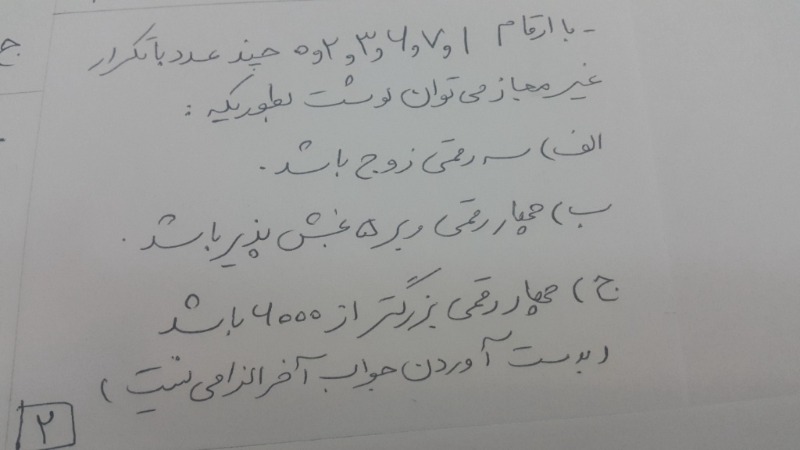 - با ارقام ۱و۷و۶و۳و۲و۵ چند عدد با تکرار
غیر مجاز می توان نوشت بطوریکه :
الف) سه رقمی زوج باشد .
ب) چهار رقمی و بر ۵ بخش پذیر باشد .
ج) چهار رقمی بزرگتر از ۶۰۰۰ باشد
(بدست آوردن جواب آخر الزامی نیست)
۲